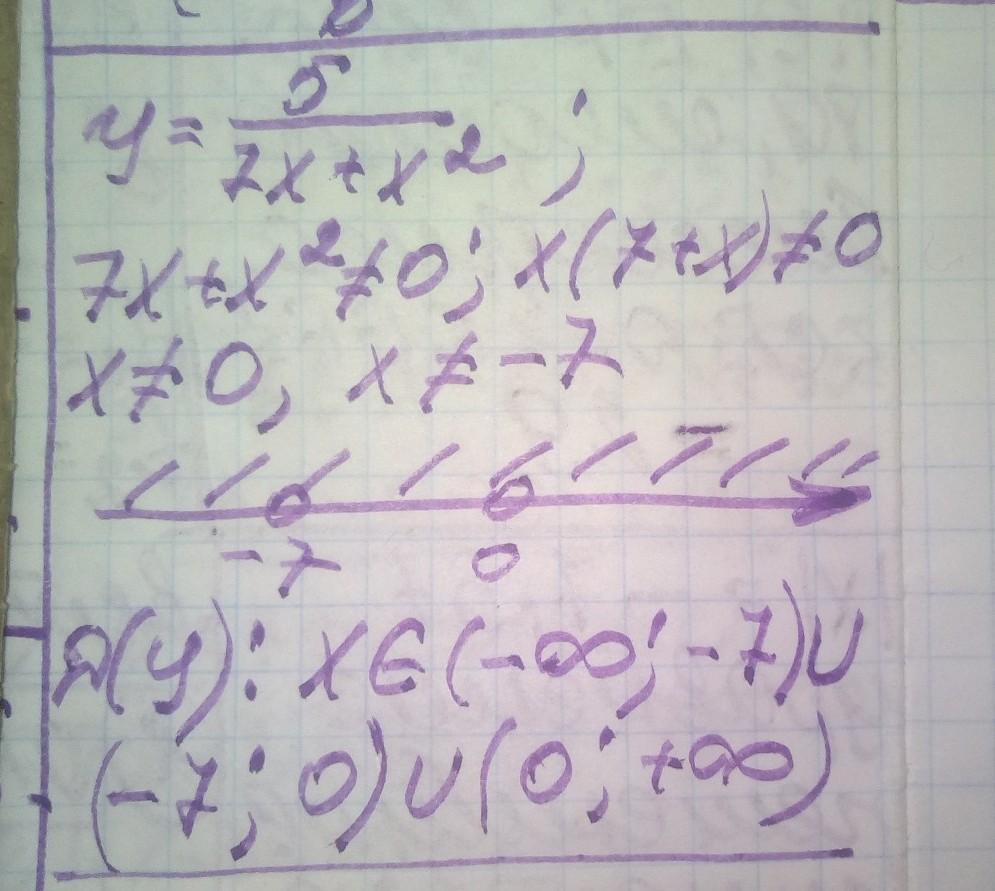 y = 5/(7x + x²) ;
7x + x² ≠ 0; x(7+x) ≠ 0
x ≠ 0, x ≠ -7
-7 0
D(y): x ∈ (-∞; -7) ∪
(-7; 0) ∪ (0; +∞)